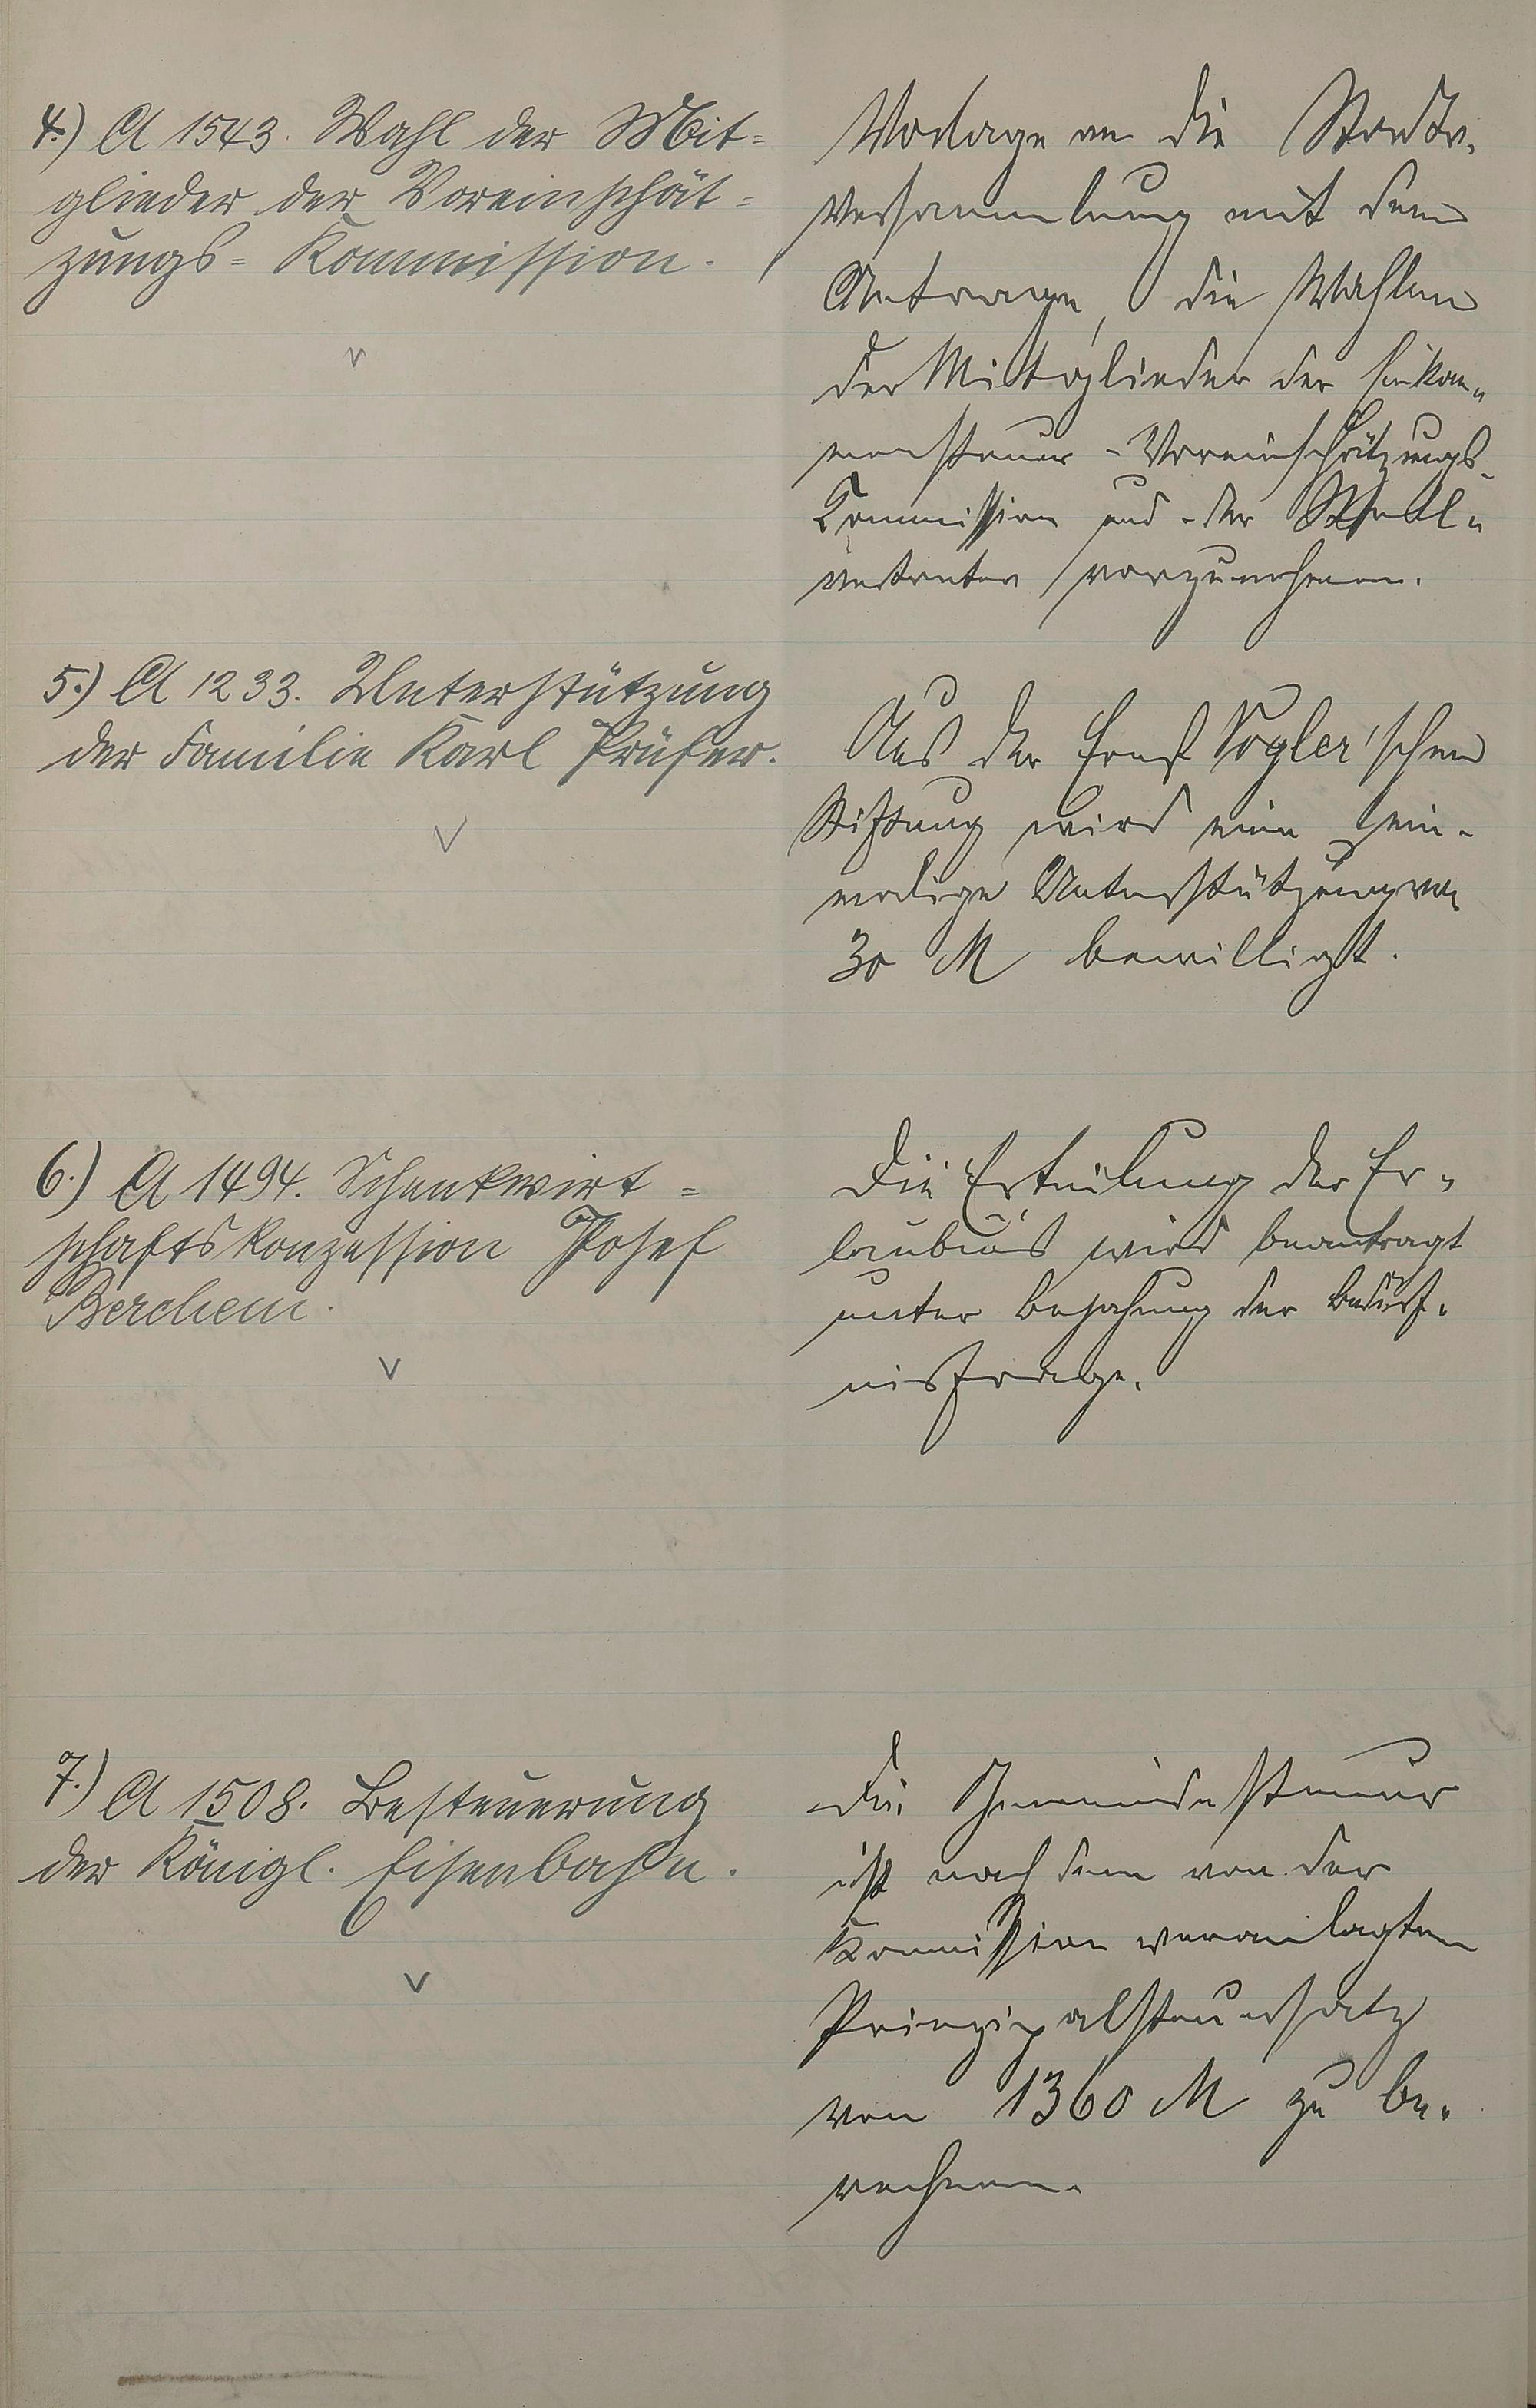 4.) A 1543. Wahl der Mit=
glieder der Voreinschät=
zungs=Kommission.
Vorlage an die Stadtv.
versammlung mit dem
Antrage, die Wahlen
der Mitglieder der Einkom-
mensteuer-Voreinschätzungs-
Kommission und der Stell-
vertreter vorzunehmen.
5.) A 1233. Unterstützung
der Familie Karl Prüfer.
Aus der Ernst Vogler'schen
Stiftung wird eine ein-
malige Unterstützung von
30 M bewilligt.
6.) A 1494. Schankwirt=
schaftskonzession Josef
Berchem.
Die Erteilung der Er-
laubnis wird beantragt
unter Bejahung der Bedürf-
nisfrage.
7.) A 1508. Besteuerung
der Königl. Eisenbahn.
Die Gemeindesteuer
ist nach dem von der
Kommission veranlagten
Prinzipalsteuersatz
von 1360 M zu be-
rechnen.